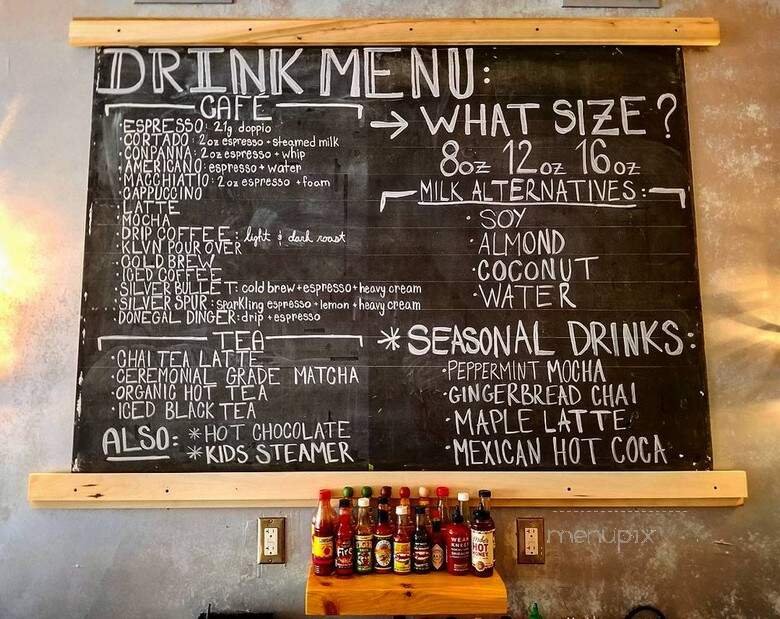 DRINK MENU:
CAFÉ
·ESPRESSO: 21g doppio
·CORTADO: 2oz espresso + steamed milk
·CONPANNA: 2oz espresso + whip
·AMERICANO: espresso + water
·MACCHIATO: 2oz espresso + foam
·CAPPUCCINO
·LATTE
·MOCHA
·DRIP COFFEE: light & dark roast
·KLVN POUR OVER
·COLD BREW
·ICED COFFEE
·SILVER BULLET: cold brew + espresso + heavy cream
·SILVER SPUR: sparkling espresso + lemon + heavy cream
·DONEGAL DINGER: drip + espresso
TEA
·CHAI TEA LATTE
·CEREMONIAL GRADE MATCHA
·ORGANIC HOT TEA
·ICED BLACK TEA
ALSO: *HOT CHOCOLATE
*KIDS STEAMER
→ WHAT SIZE?
8oz 12oz 16oz
MILK ALTERNATIVES:
·SOY
·ALMOND
·COCONUT
·WATER
*SEASONAL DRINKS:
·PEPPERMINT MOCHA
·GINGERBREAD CHAI
·MAPLE LATTE
·MEXICAN HOT COCA
Fire
WEAK KNEES
HOT
menupix